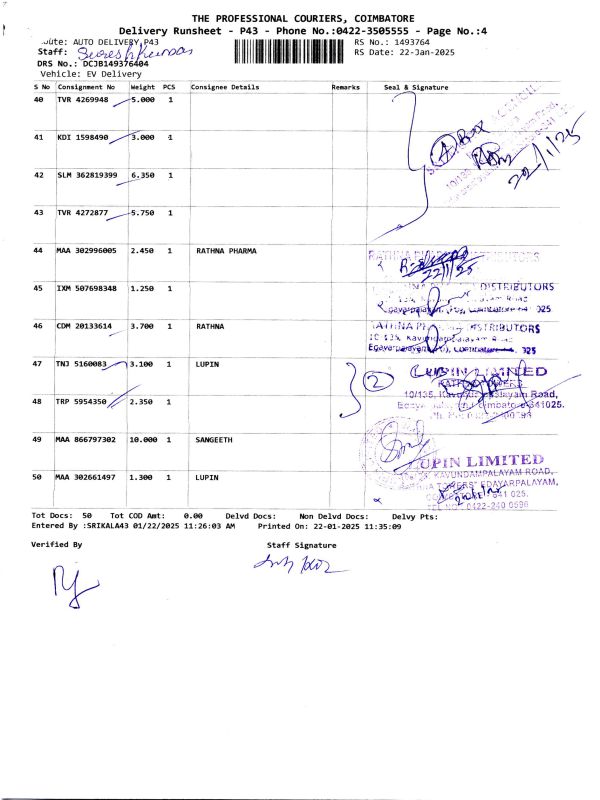 THE PROFESSIONAL COURIERS, COIMBATORE
Delivery Runsheet - P43 - Phone No.:0422-3505555 - Page No.:4
Route: AUTO DELIVERY,P43
RS No.: 1493764
Staff: Sureshkumar
RS Date: 22-Jan-2025
DRS No.: DCJB149376404
Vehicle: EV Delivery
S No Consignment No Weight PCS Consignee Details Remarks Seal & Signature
40 TVR 4269948 5.000 1
41 KDI 1598490 3.000 1
4 Box
10/135
22/1/25
42 SLM 362819399 6.350 1
43 TVR 4272877 5.750 1
44 MAA 302996005 2.450 1 RATHNA PHARMA
22/1/25
45 IXM 507698348 1.250 1
DISTRIBUTORS
46 CDM 20133614 3.700 1 RATHNA
DISTRIBUTORS
47 TNJ 5160083 3.100 1 LUPIN
2 LUPIN LIMITED
48 TRP 5954350 2.350 1
10/135, Kavundampalayam Road,
49 MAA 866797302 10.000 1 SANGEETH
LUPIN LIMITED
KAVUNDAMPALAYAM ROAD,
50 MAA 302661497 1.300 1 LUPIN
TOWERS' EDAYARPALAYAM,
641 025.
TEL NO: 0422-240 0596
Tot Docs: 50 Tot COD Amt: 0.00 Delvd Docs: Non Delvd Docs: Delvy Pts:
Entered By :SRIKALA43 01/22/2025 11:26:03 AM Printed On: 22-01-2025 11:35:09
Verified By Staff Signature